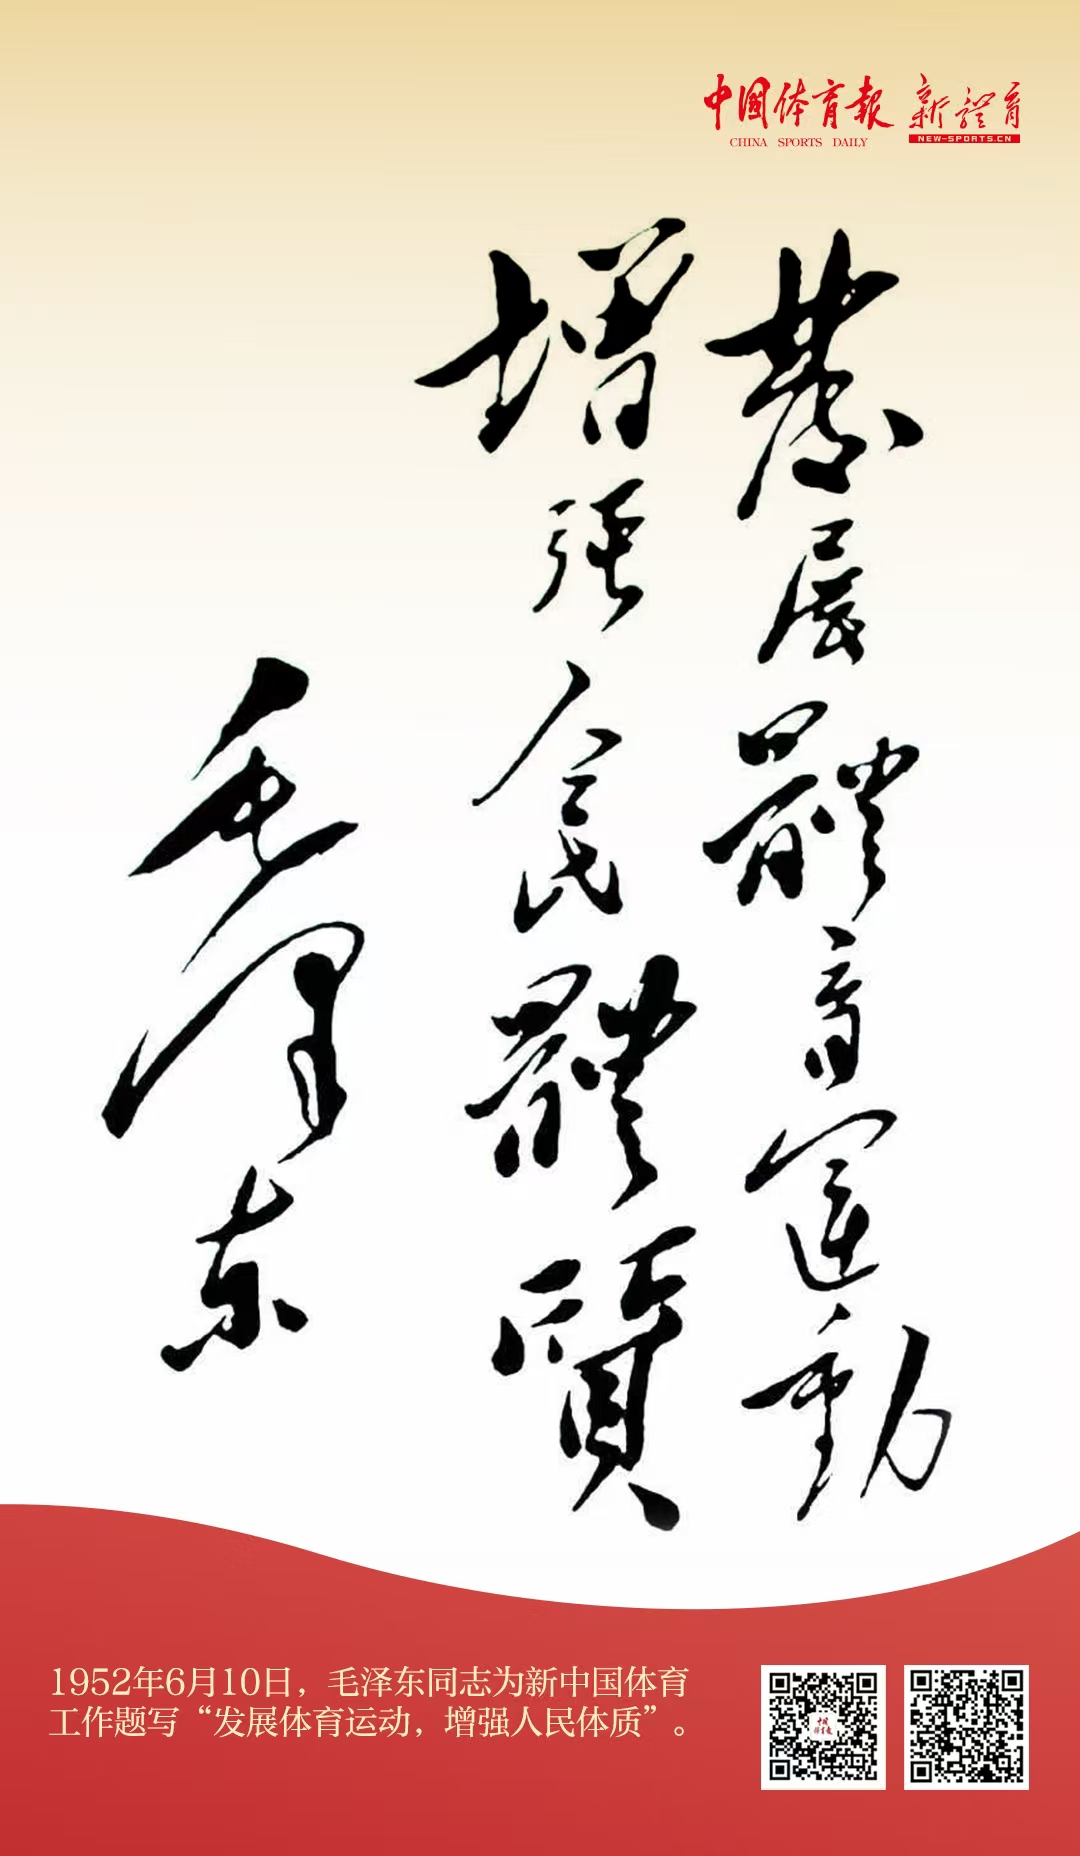 中国体育報 新體育
CHINA SPORTS DAILY NEW-SPORTS.CN
發展體育運動
增强人民體質
毛澤东
1952年6月10日，毛泽东同志为新中国体育
工作题写“发展体育运动，增强人民体质”。